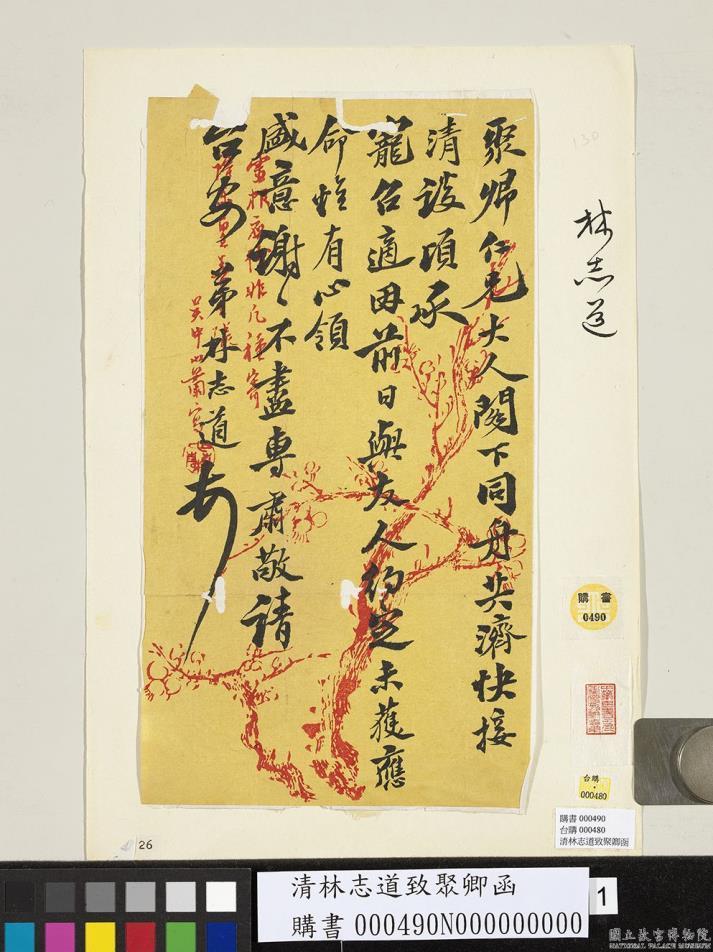 聚卿仁兄大人閣下同舟共濟快接
清談頃承
寵召適因前日與友人約定未獲應
命惟有心領
盛意謝〻不盡專肅敬請
台安 弟林志道頓
林志道
購書
0490
台購
000480
購書 000490
台購 000480
清林志道致聚卿函
26
清林志道致聚卿函
購書 000490N000000000
1
國立故宮博物院
NATIONAL PALACE MUSEUM